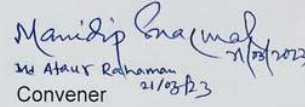 Manidip 21/03/2023
Md Ataur Rahaman
21/03/23
Convener